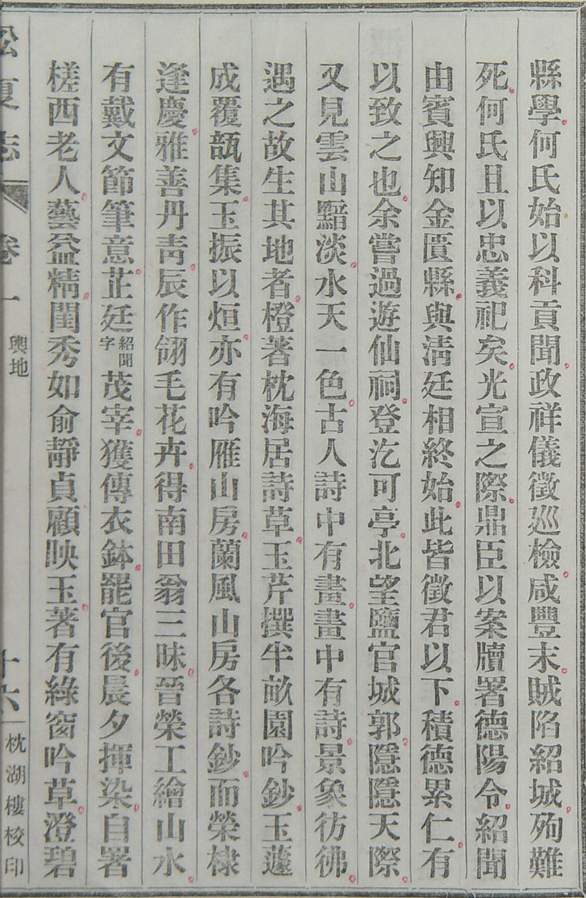 縣學何氏始以科貢聞政祥儀徵巡檢咸豐末賊陷紹城殉難
死何氏且以忠義祀矣光宣之際鼎臣以案牘署德陽令紹聞
由賓興知金匱縣與清廷相終始此皆徵君以下積德累仁有
以致之也余嘗過遊仙祠登汔可亭北望鹽官城郭隱隱天際
又見雲山黯淡水天一色古人詩中有畫畫中有詩景象彷彿
遇之故生其地者橙著枕海居詩草玉芹撰半畝園吟鈔玉蘧
成覆瓿集玉振以烜亦有吟雁山房蘭風山房各詩鈔而榮棣
逢慶雅善丹青辰作翎毛花卉得南田翁三昧晉榮工繪山水
有戴文節筆意芷廷紹聞字茂宰獲傳衣鉢罷官後晨夕揮染自署
槎西老人藝益精閨秀如俞靜貞顧映玉著有綠窗吟草澄碧
松夏志 卷一 輿地 十六 枕湖樓校印